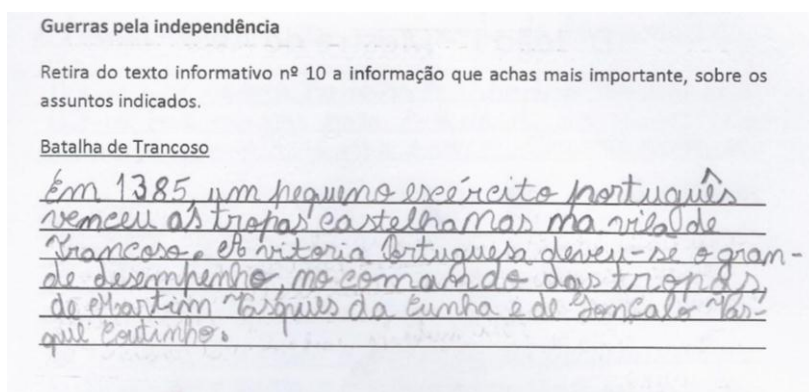 Guerras pela independência
Retira do texto informativo nº 10 a informação que achas mais importante, sobre os
assuntos indicados.
Batalha de Trancoso
Em 1385, um pequeno escército português
venceu as tropas castelhanas na vila de
Trancoso. A vitoria Portuguesa deveu-se o gran-
de desempenho, no comando das tropas,
de Martim Vasques da Cunha e de Gonçalo Vas-
que Coutinho.